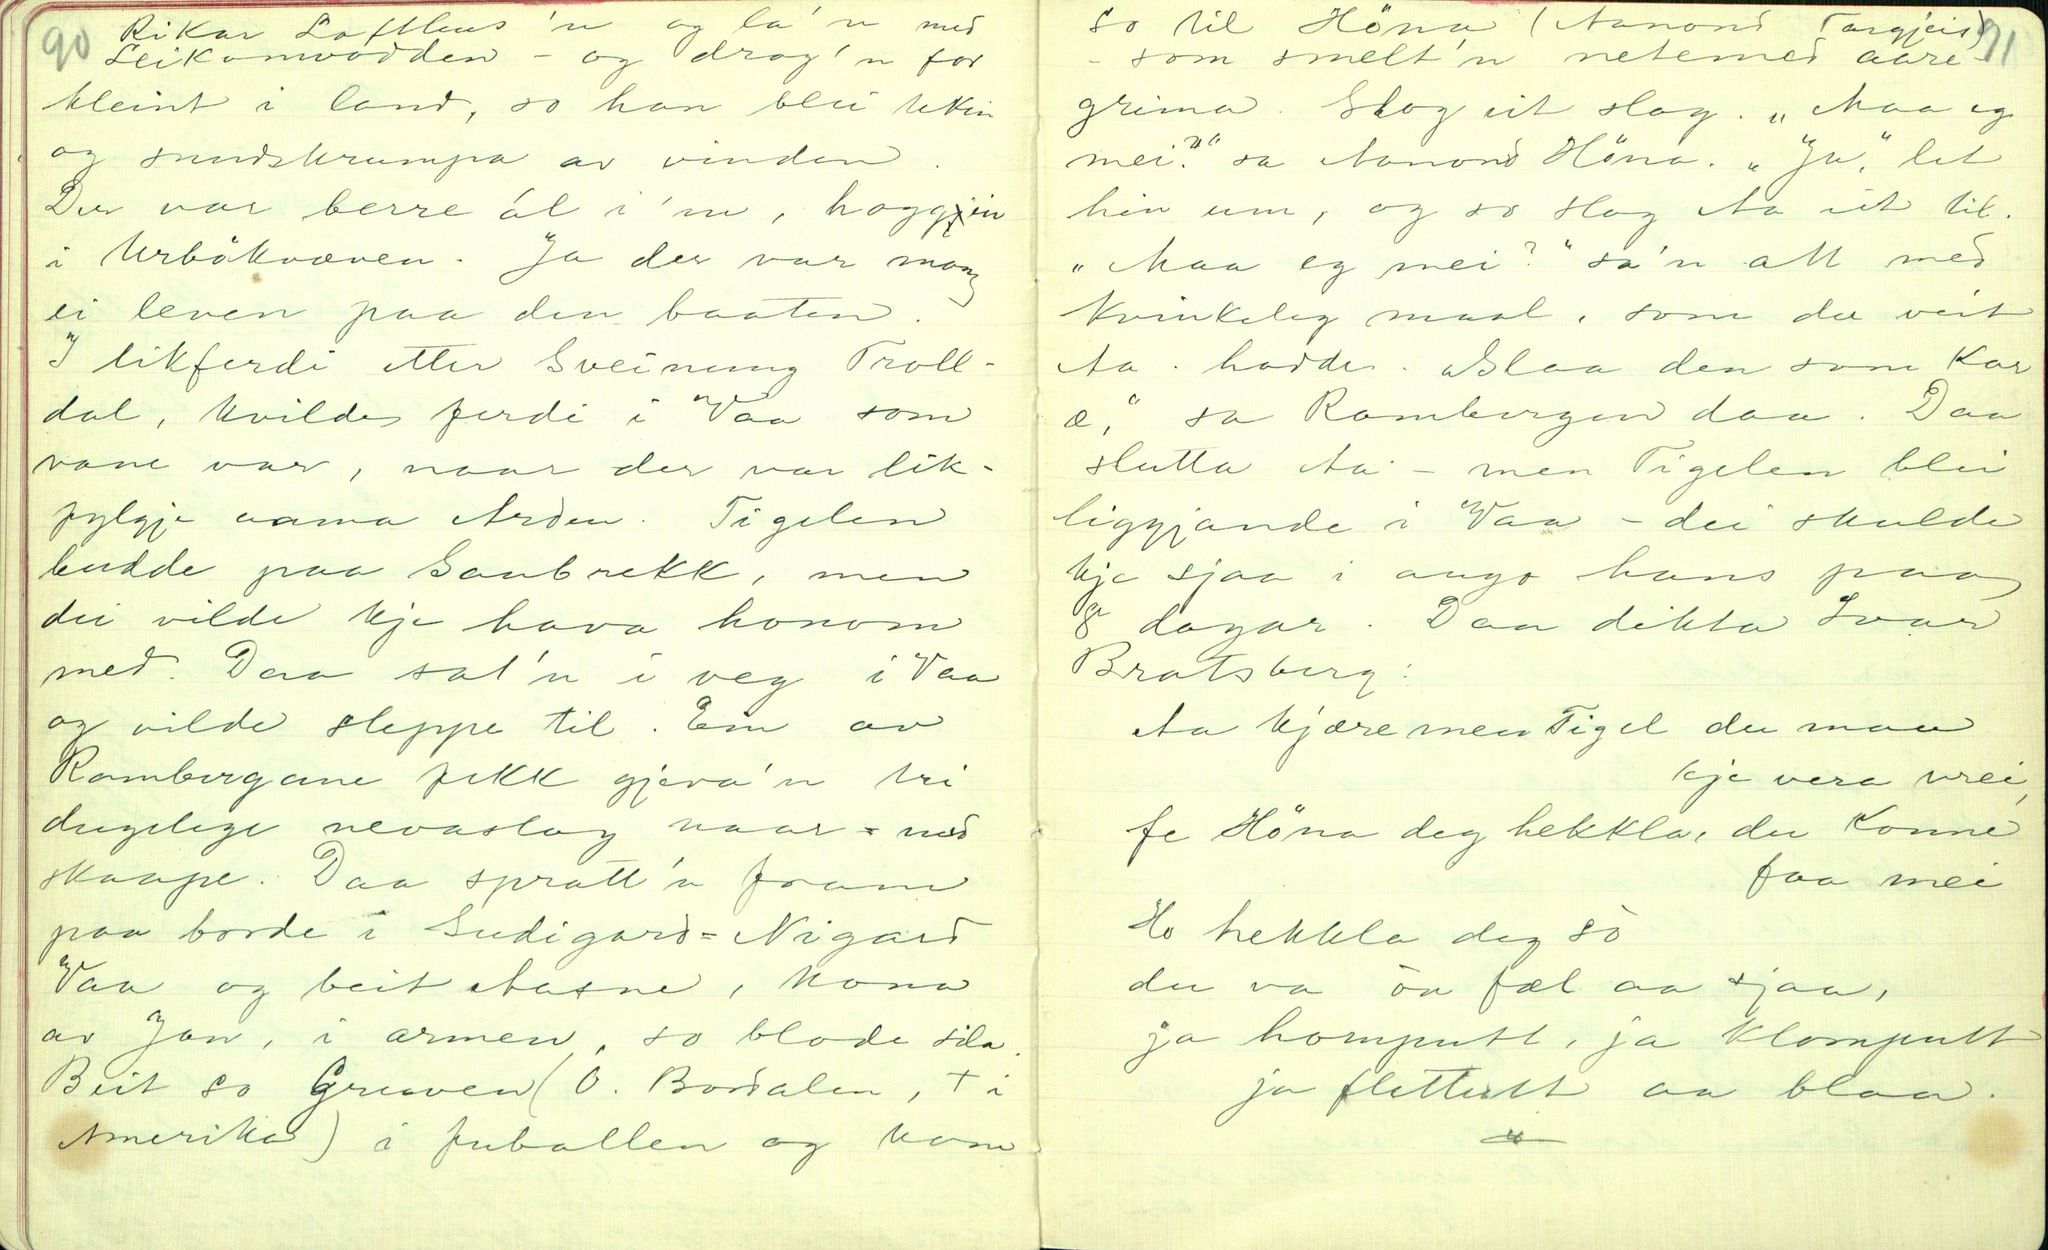 90
Rikar Lofthus'n og la'n med
Leikamvodden - og drog'n for
kleint i land, so han blei tekin
og snudskrumpa av vinden.
Der var berre ål i'm, hoggjin
i Urbökvæven. Ja der var mang
ei leven paa den baaten.
I likferdi etter Sveinung Troll-
dal, kvilde ferdi i Vaa som
vane var, naar der var lik-
fylgje aama Arden. Tigelen
budde paa Saubrekk, men
dei vilde kje hava honom
med. Daa sat'n i veg i Vaa
og vilde sleppe til. Ein av
Rambergane fekk gjeva'n tri
dugelege nevaslag naar = med
skaape. Daa spratt'n fram
paa borde i Sudigard = Nigard
Vaa og beit Aasne, kona
av Jon, i armen, so blode sila.
Beit so Greiven (O. Bordalen, † i
Amerika) i fuballen og kom
91
so til Höna (Aanond Targjeis)
- som smelt'n netemed aare-
grima. Slog eit slag. „Maa eg
mei?" sa Aanond Höna. „Ja," let
hin um, og so slog Aa eit til.
„Maa eg mei?" sa'n att med
kvinkeleg maal, som du veit
Aa. hadde. „Slaa den som kar
æ," sa Rambergen daa. Daa
slutta Aa - men Tigelen blei
liggjande i Vaa - dei skulde
kje sjaa i augo hans paa
8 dagar. Daa dikta Ivar
Bratsberg:
Aa kjære men Tigel du maa
kje vera vrei,
fe Höna deg hekkla, du konne
faa mei
Ho hekkla deg so
du va öa fæl aa sjaa,
ja homputt, ja klomputt
ja flettutt aa blaa.